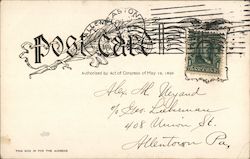 POST CARD
Authorized by act of Congress of May 19, 1898
Alex M. Weyand
c/o Geo. Lieberman
408 Union St.
Allentown Pa.
THIS SIDE IS FOR THE ADDRESS